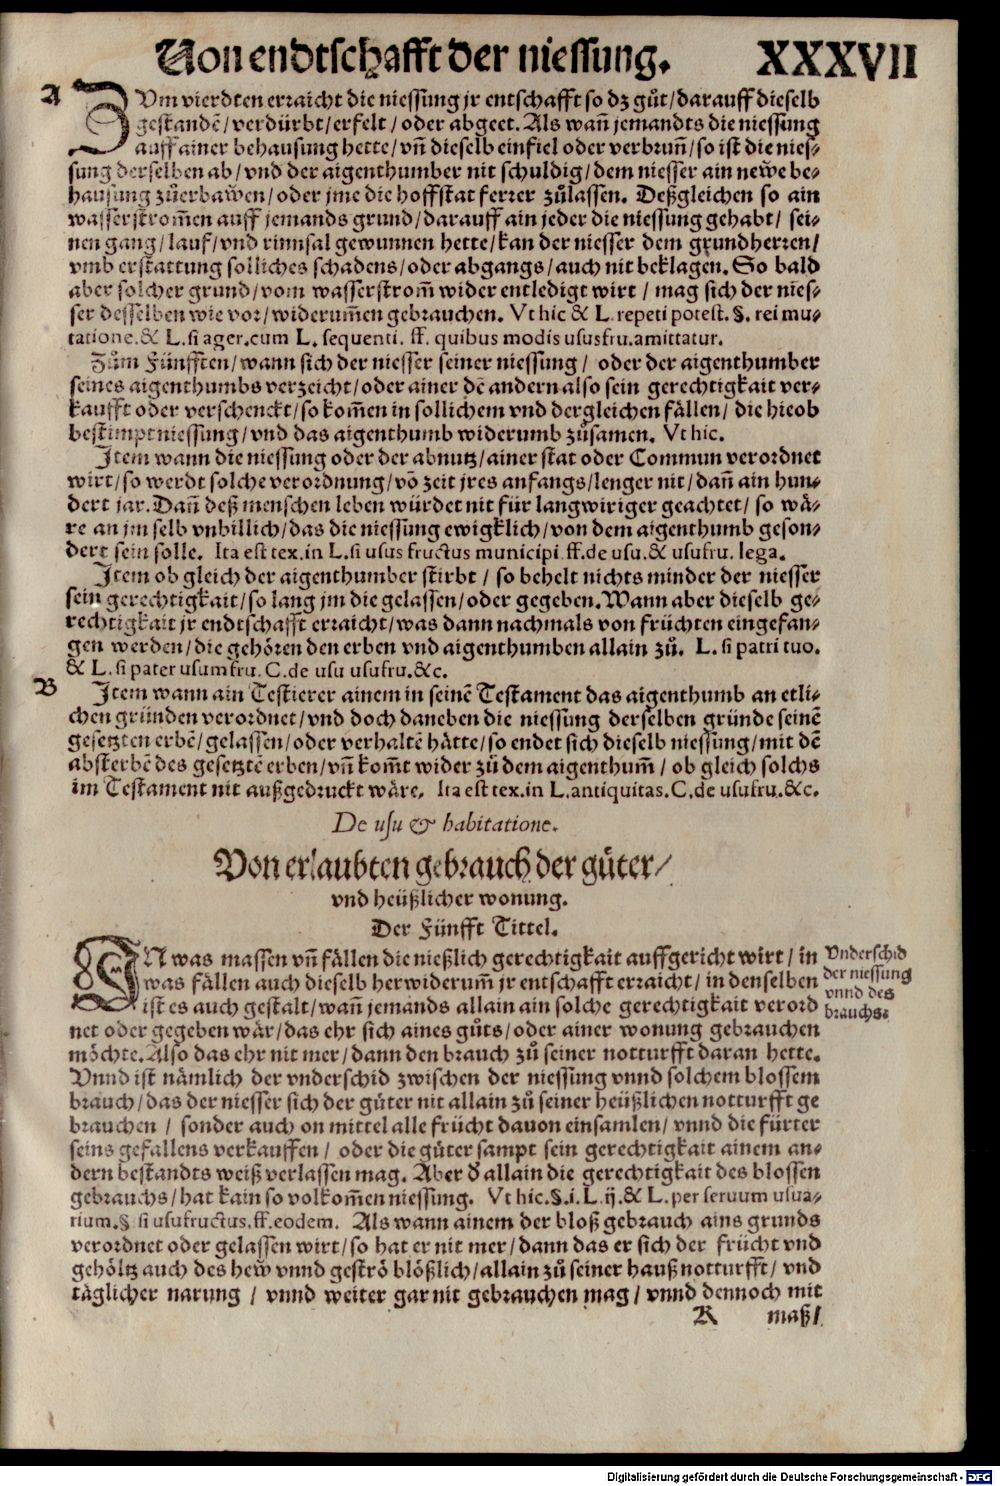 Von endtschafft der niessung. XXXVII
A
ZUm vierdten erraicht die niessung jr entschafft so dz gůt / darauff dieselb
gestandē / verdürbt / erfelt / oder abgeet. Als wañ jemandts die niessung
auff ainer behausung hette / vñ dieselb einfiel oder verbruñ / so ist die nies⸗
sung derselben ab / vnd der aigenthumber nit schuldig / dem niesser ain newe be⸗
hausung zůerbawen / oder jme die hoffstat ferrer zůlassen. Deßgleichen so ain
wasserstrom̃en auff jemands grund / darauff ain jeder die niessung gehabt / sei⸗
nen gang / lauf / vnd rinnsal gewunnen hette / kan der niesser dem grundherren /
vmb erstattung solliches schadens / oder abgangs / auch nit beklagen. So bald
aber solcher grund / vom wasserstrom̃ wider entledigt wirt / mag sich der nies⸗
ser desselben wie vor / widerum̃en gebrauchen. Vt hic & L. repeti potest. §. rei mu⸗
tatione. & L. si ager. cum L. sequenti. ff. quibus modis ususfru. amittatur.
Zům Fünfften / wann sich der niesser seiner niessung / oder der aigenthumber
seines aigenthumbs verzeicht / oder ainer dē andern also sein gerechtigkait ver⸗
kaufft oder verschenckt / so kom̃en in sollichem vnd dergleichen fällen / die hieob
bestimpt niessung / vnd das aigenthumb widerumb zůsamen. Vt hic.
Item wann die niessung oder der abnutz / ainer stat oder Commun verordnet
wirt / so werdt solche verordnung / vō zeit jres anfangs / lenger nit / dañ ain hun⸗
dert jar. Dañ deß menschen leben würdet nit für langwiriger geachtet / so wä⸗
re an jm selb vnbillich / das die niessung ewigklich / von dem aigenthumb geson⸗
dert sein solle. Ita est tex. in L. si usus fructus municipi. ff. de usu. & usufru. lega.
Item ob gleich der aigenthumber stirbt / so behelt nichts minder der niesser
sein gerechtigkait / so lang jm die gelassen / oder gegeben. Wann aber dieselb ge⸗
rechtigkait jr endtschafft erraicht / was dann nachmals von früchten eingefan⸗
gen werden / die gehören den erben vnd aigenthumben allain zů. L. si patri tuo.
& L. si pater usumfru. C. de usu usufru. &c.
B
Item wann ain Testierer ainem in seinē Testament das aigenthumb an etli⸗
chen gründen verordnet / vnd doch daneben die niessung derselben gründe seinē
gesetzten erbē / gelassen / oder verhaltē hätte / so endet sich dieselb niessung / mit dē
absterbē des gesetztē erben / vñ kom̃t wider zů dem aigenthum̃ / ob gleich solchs
im Testament nit außgedruckt wäre. Ita est tex. in L. antiquitas. C. de usufru. &c.
De usu & habitatione.
Von erlaubten gebrauch der güter /
vnd heüßlicher wonung.
Der Fünfft Tittel.
IN was massen vñ fällen die nießlich gerechtigkait auffgericht wirt / in
was fällen auch dieselb herwiderum̃ jr entschafft erraicht / in denselben
ist es auch gestalt / wañ jemands allain ain solche gerechtigkait verord
net oder gegeben wär / das ehr sich aines gůts / oder ainer wonung gebrauchen
möchte. Also das ehr nit mer / dann den brauch zů seiner notturfft daran hette.
Vnnd ist nämlich der vnderschid zwischen der niessung vnnd solchem blossem
brauch / das der niesser sich der güter nit allain zů seiner heüßlichen notturfft ge
brauchen / sonder auch on mittel alle frücht dauon einsamlen / vnnd die fürter
seins gefallens verkauffen / oder die güter sampt sein gerechtigkait ainem an⸗
dern bestandts weiß verlassen mag. Aber d allain die gerechtigkait des blossen
gebrauchs / hat kain so volkom̃en niessung. Vt hic. §. i. L. ij. & L. per seruum usua⸗
rium. §. si usufructus. ff. eodem. Als wann ainem der bloß gebrauch ains grunds
verordnet oder gelassen wirt / so hat er nit mer / dann das er sich der frücht vnd
gehöltz auch des hew vnnd geströ blößlich / allain zů seiner hauß notturfft / vnd
täglicher narung / vnnd weiter gar nit gebrauchen mag / vnnd dennoch mit
K maß /
Vnderschid
der niessung
vnnd des
brauchs.
Digitalisierung gefördert durch die Deutsche Forschungsgemeinschaft - DFG